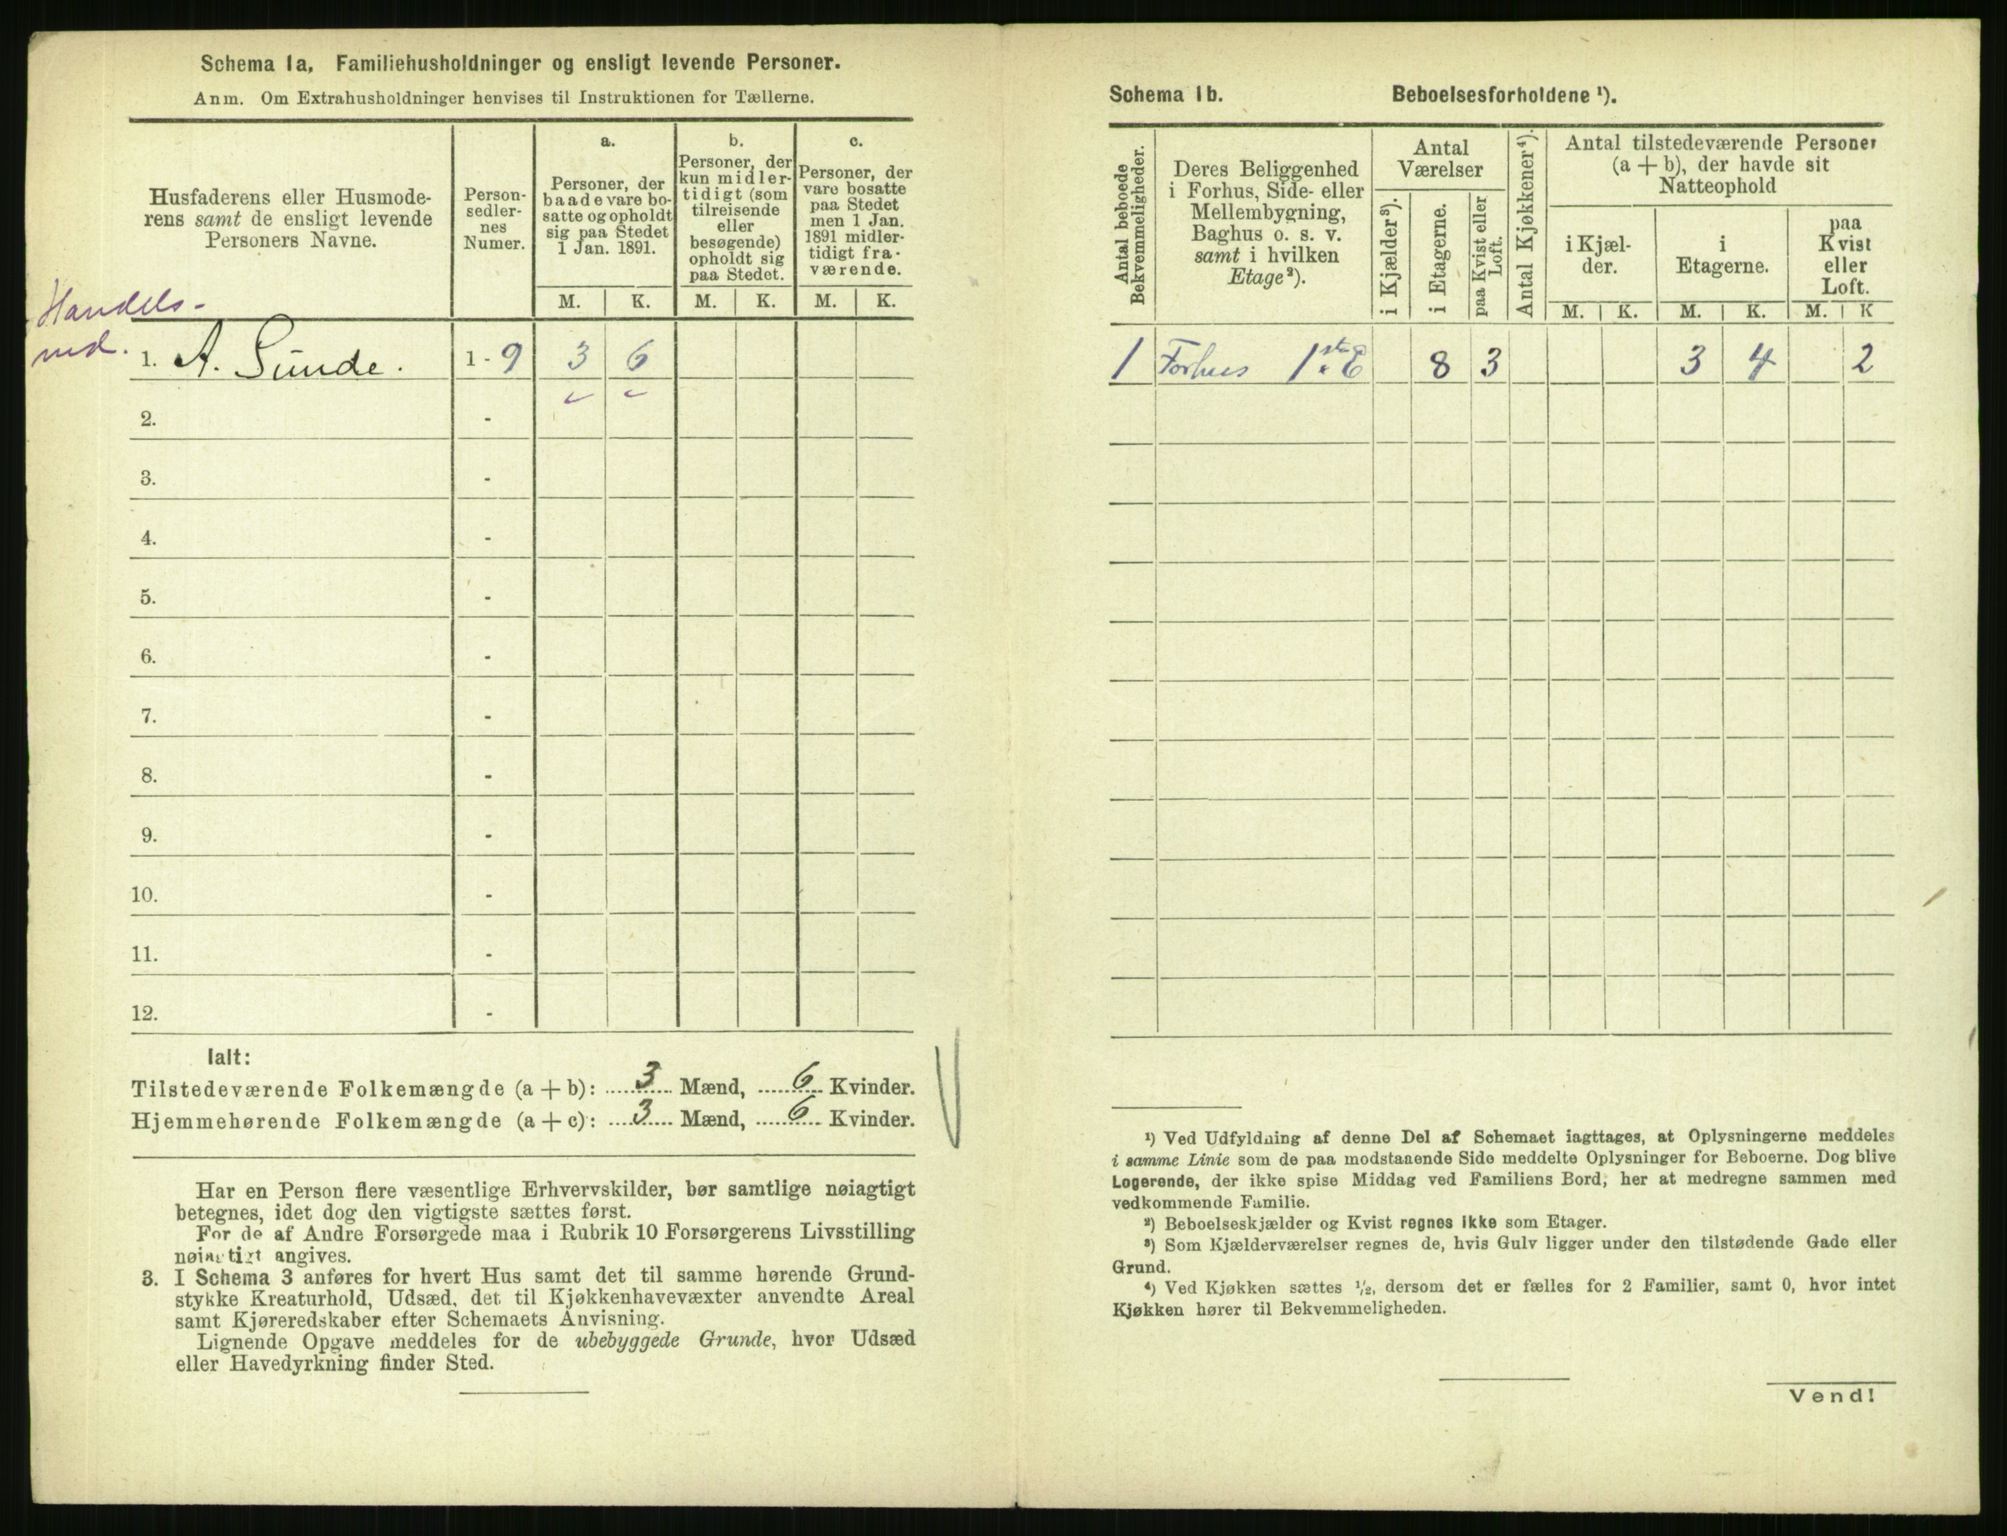 Schema 1a, Familiehusholdninger og ensligt levende Personer.
Anm. Om Extrahusholdninger henvises til Instruktionen for Tællerne.
Husfaderens eller Husmode-
rens samt de ensligt levende
Personers Navne.
Person-
sedler-
nes
Numer.
a.
Personer, der
baade vare bo-
satte og opholdt
sig paa Stedet
1 Jan. 1891.
b.
Personer, der
kun midler-
tidigt (som
tilreisende
eller
besøgende)
opholdt sig
paa Stedet.
c.
Personer, der
vare bosatte
paa Stedet
men 1 Jan.
1891 midler-
tidigt fra-
værende.
M. K. M. K. M. K.
Handels-
1. A. Sunde. 1 - 9 3 6
2. -
3. -
4. -
5. -
6. -
7. -
8. -
9. -
10. -
11. -
12. -
Ialt:
Tilstedeværende Folkemængde (a + b): 3 Mænd, 6 Kvinder.
Hjemmehørende Folkemængde (a + c): 3 Mænd, 6 Kvinder.
Har en Person flere væsentlige Erhvervskilder, bør samtlige nøiagtigt
betegnes, idet dog den vigtigste sættes først.
For de af Andre Forsørgede maa i Rubrik 10 Forsørgerens Livsstilling
nøiagtigt angives.
3. I Schema 3 anføres for hvert Hus samt det til samme hørende Grund-
stykke Kreaturhold, Udsæd, det til Kjøkkenhavevæxter anvendte Areal
samt Kjøreredskaber efter Schemaets Anvisning.
Lignende Opgave meddeles for de ubebyggede Grunde, hvor Udsæd
eller Havedyrkning finder Sted.
Schema 1b. Beboelsesforholdene ¹).
Antal beboede
Bekvemmeligheder.
Deres Beliggenhed
i Forhus, Side- eller
Mellembygning,
Baghus o. s. v.
samt i hvilken
Etage²).
Antal
Værelser
i Kjælder³).
i Etagerne.
paa Kvist eller
Loft.
Antal Kjøkkener⁴).
Antal tilstedeværende Personer
(a + b), der havde sit
Natteophold
i Kjæl-
der.
i
Etagerne.
paa
Kvist
eller
Loft.
M. K. M. K. M. K
1 Forhus 1ste E 8 3 3 4 2
¹) Ved Udfyldning af denne Del af Schemaet iagttages, at Oplysningerne meddeles
i samme Linie som de paa modstaaende Side meddelte Oplysninger for Beboerne. Dog blive
Logerende, der ikke spise Middag ved Familiens Bord, her at medregne sammen med
vedkommende Familie.
²) Beboelseskjælder og Kvist regnes ikke som Etager.
³) Som Kjælderværelser regnes de, hvis Gulv ligger under den tilstødende Gade eller
Grund.
⁴) Ved Kjøkken sættes ½, dersom det er fælles for 2 Familier, samt 0, hvor intet
Kjøkken hører til Bekvemmeligheden.
Vend!